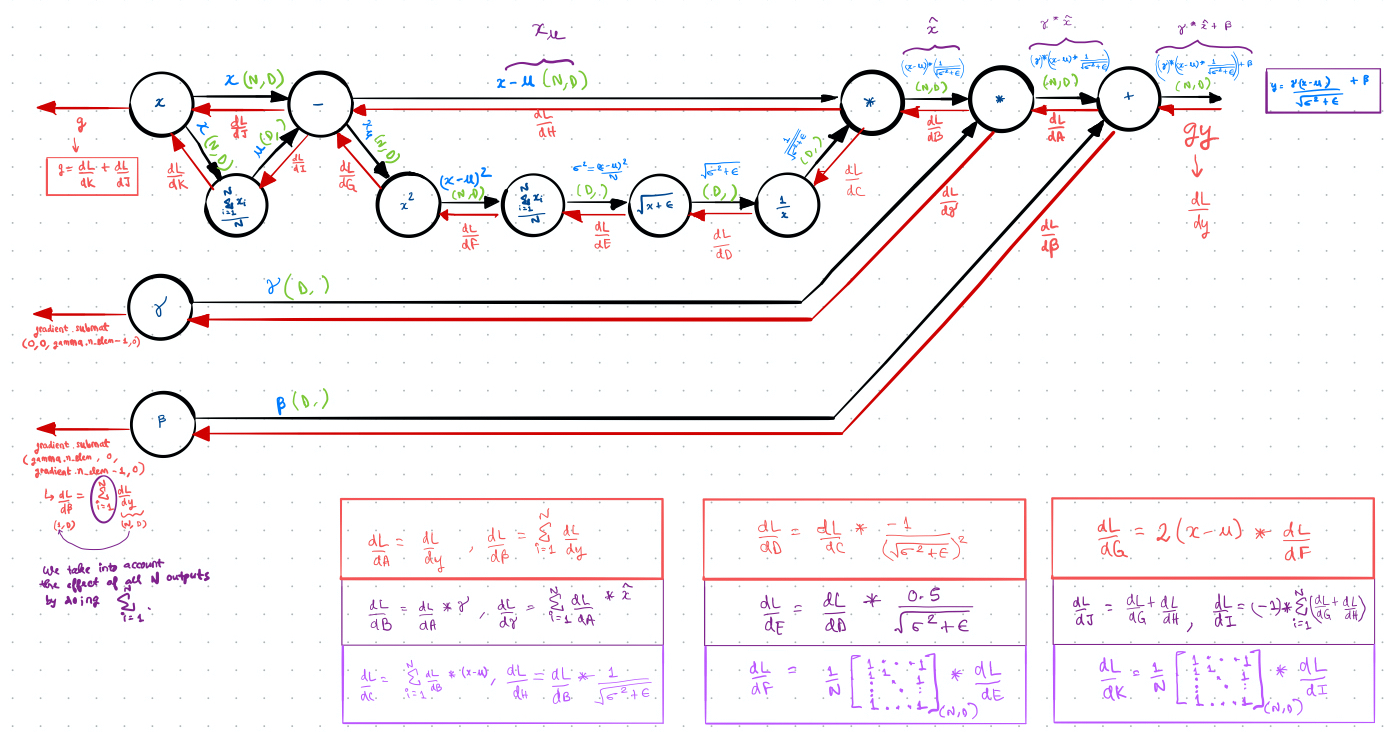 x̂
γ * x̂
γ * x̂ + β
x_μ
x - μ (N,D)
(x-μ)*(1/√(σ²+ϵ))
(N,D)
(γ*(x-μ)* 1/√(σ²+ϵ))
(N,D)
(γ*(x-μ)* 1/√(σ²+ϵ)) + β
(N,D)
y = γ(x-μ)/√(σ²+ϵ) + β
x
x (N,D)
-
*
*
+
g
dL/dJ
dL/dH
dL/dB
dL/dA
gy
dL/dy
g = dL/dK + dL/dJ
x (N,D)
μ (D,)
dL/dK
dL/dI
x_μ (N,D)
dL/dG
1/√(σ²+ϵ) (D,)
dL/dC
∑_{i=1}^{N} x_i / N
x²
(x-μ)²
(N,D)
dL/dF
∑_{i=1}^{N} x_i / N
σ² = (x-μ)²/N
(D,)
dL/dE
√(x+ϵ)
√(σ²+ϵ)
(D,)
dL/dD
1/x
dL/dγ
dL/dβ
γ
γ (D,)
gradient.submat
(0,0, gamma.n_elem-1,0)
β
β (D,)
gradient.submat
(gamma.n_elem, 0,
gradient.n_elem-1,0)
↳ dL/dβ = ∑_{i=1}^{N} dL/dy
(1,D) (N,D)
We take into account
the effect of all N outputs
by doing ∑_{i=1}^{N}.
dL/dA = dL/dy , dL/dβ = ∑_{i=1}^{N} dL/dy
dL/dB = dL/dA * γ , dL/dγ = ∑_{i=1}^{N} dL/dA * x̂
dL/dC = ∑_{i=1}^{N} dL/dB * (x-μ), dL/dH = dL/dB * 1/√(σ²+ϵ)
dL/dD = dL/dC * -1/(√(σ²+ϵ))²
dL/dE = dL/dD * 0.5/√(σ²+ϵ)
dL/dF = 1/N [1 . . 1 1 1 . . 1 . . 1](N,D) * dL/dE
dL/dG = 2(x-μ) * dL/dF
dL/dJ = dL/dG + dL/dH , dL/dI = (-1)*∑_{i=1}^{N} (dL/dG + dL/dH)
dL/dK = 1/N [1 . . 1 1 1 . . 1 . . 1](N,D) * dL/dI